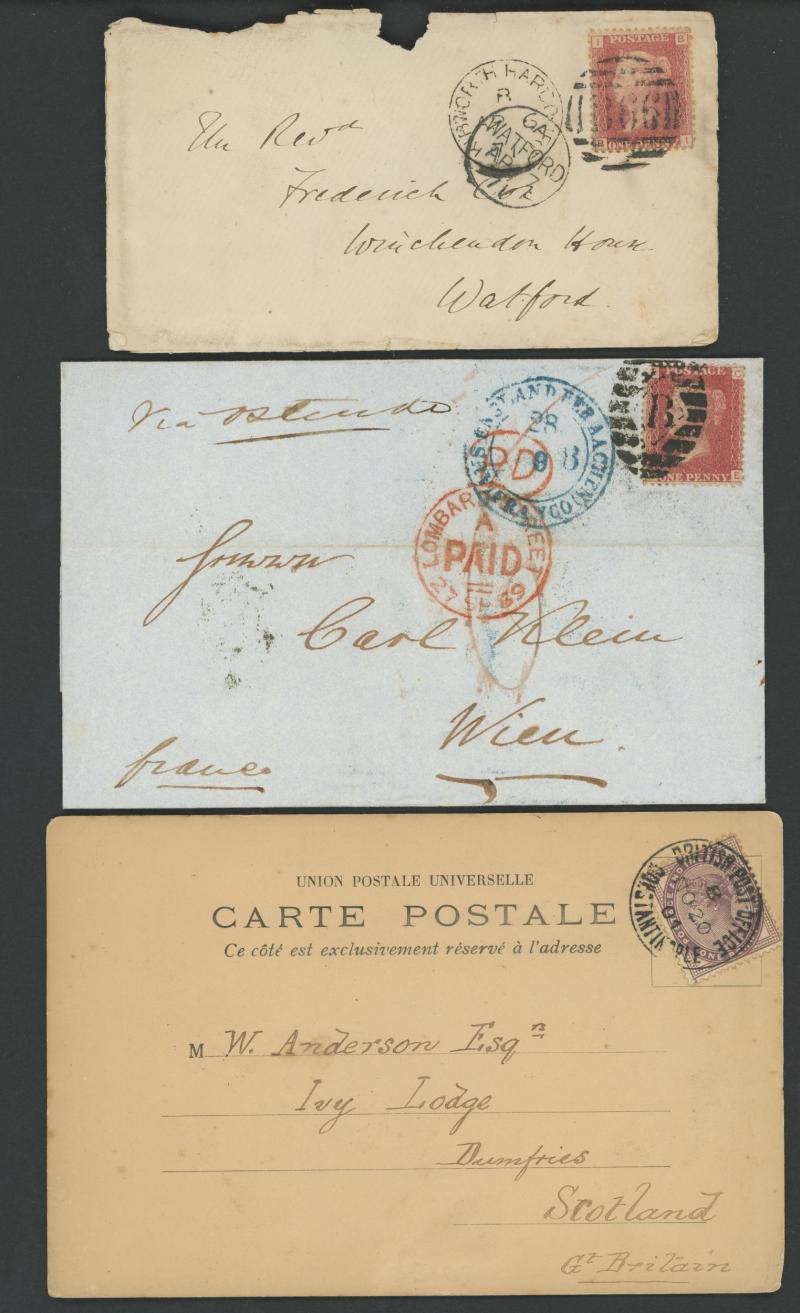 I B
POSTAGE
ONE PENNY
B I
KIBWORTH HARCO
B
WATFORD
AP
The Revd
Frederick
Winchendon House
Watford
via Ostende
POSTAGE
C
ONE PENNY
E
B
ENGLAND PER AACHEN
FRANCO
28
9 B
PD
LOMBARD STREET
A
PAID
27 SE 69
Carl Klein
Wien.
franco
UNION POSTALE UNIVERSELLE
CARTE POSTALE
Ce côté est exclusivement réservé à l'adresse
BRITISH POST OFFICE
CONSTANTINOPLE
OC 20
04
M W. Anderson Esqre
Ivy Lodge
Dumfries
Scotland
Gt Britain